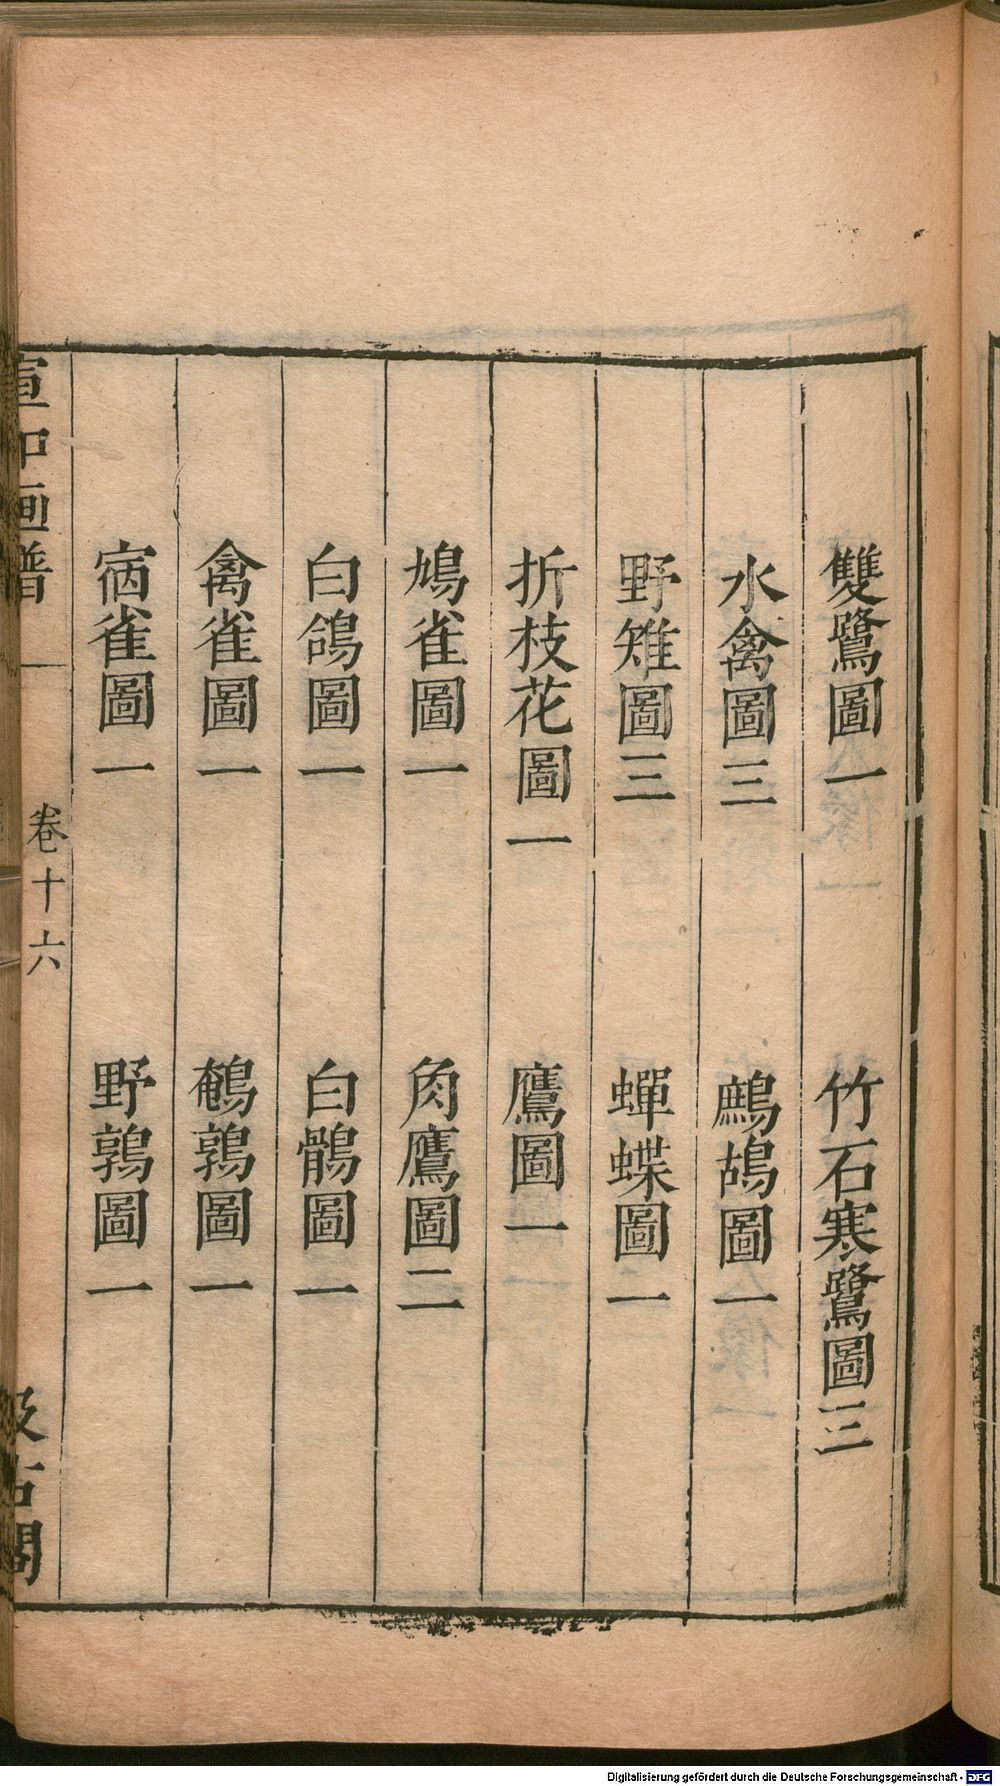 雙鷺圖一　竹石寒鷺圖三
水禽圖三　鷓鴣圖一
野雉圖三　蟬蝶圖一
折枝花圖一　鷹圖一
鳩雀圖一　角鷹圖二
白鴿圖一　白鶻圖一
禽雀圖一　鵪鶉圖一
宿雀圖一　野鶉圖一
宣和画譜　卷十六　汲古閣
Digitalisierung gefördert durch die Deutsche Forschungsgemeinschaft - DFG